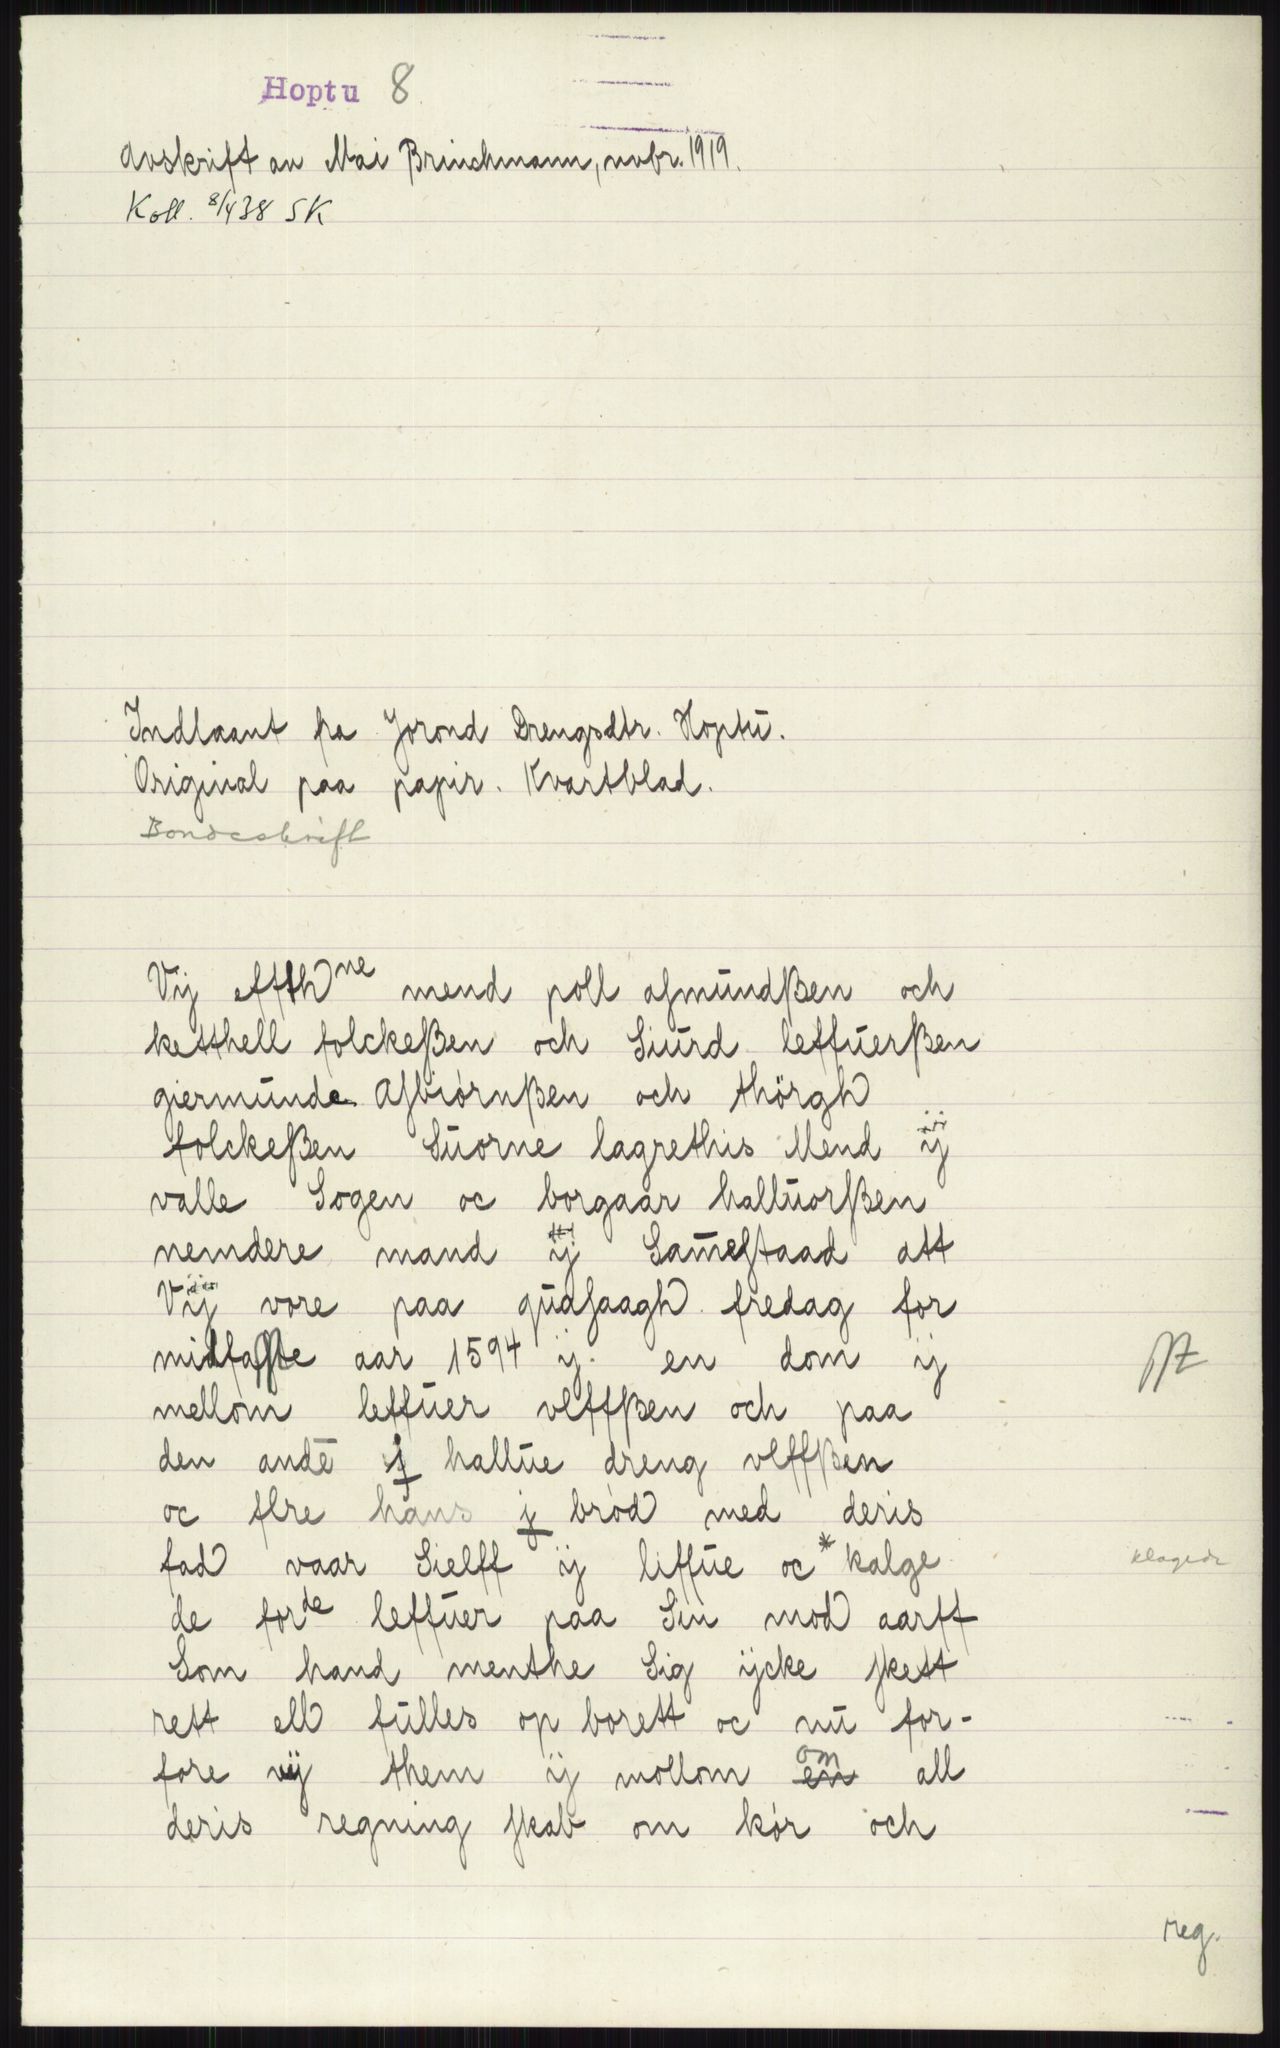 Hoptu 8
Avskrift av Mai Brinchmann, novbr. 1919.
Koll. 8/4 38 SK
Indlaant fra Jorond Drengsdtr. Hoptu.
Original paa papir. Kvartblad.
Bondeskrift
Vij effth ne mend poll asmundßen och
ketthell folckeßen och Siurd leffuerßen
giermunde Asbiørnßen och thörgh
folckeßen Suorne lagrethis Mend ij
valle Sogen oc borgaar halluorßen
nemdere mand ij Samestaad att
Vij vore paa quasaagh fredag for
midfaste aar 1594 ij en dom ij
mellom leffuer vlffßen och paa
den andē j hallue dreng vlffßen
oc flre hans j brød med deris
fad vaar Sielff ij liffue oc * kalge
klagede
de forde leffuer paa Sin mod aarff
Som hand menthe Sig ijcke skett
rett ell fulles op borett oc nu for-
fore vij them ij mollom en om all
deris regning skab om kør och
reg.